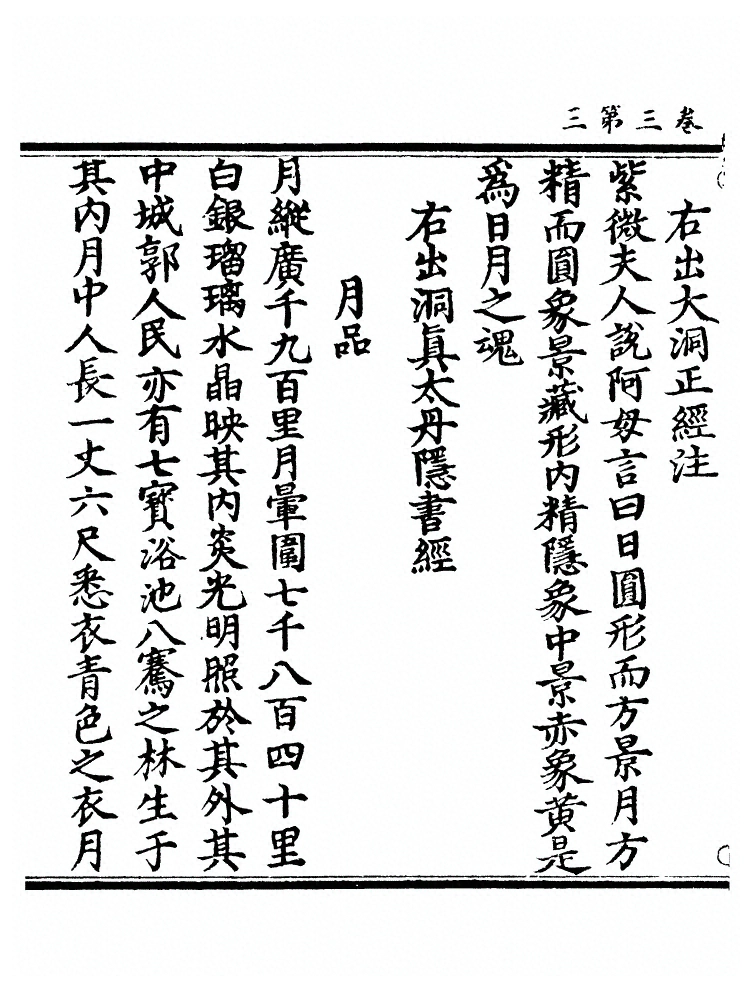 卷三第三
右出大洞正經注
紫微夫人說阿母言曰日圓形而方景月方
精而圓象景藏形內精隱象中景赤象黃是
為日月之魂
右出洞眞太丹隱書經
月品
月縱廣千九百里月暈圍七千八百四十里
白銀瑠璃水晶映其內炎光明照於其外其
中城郭人民亦有七寶浴池八騫之林生于
其內月中人長一丈六尺悉衣青色之衣月